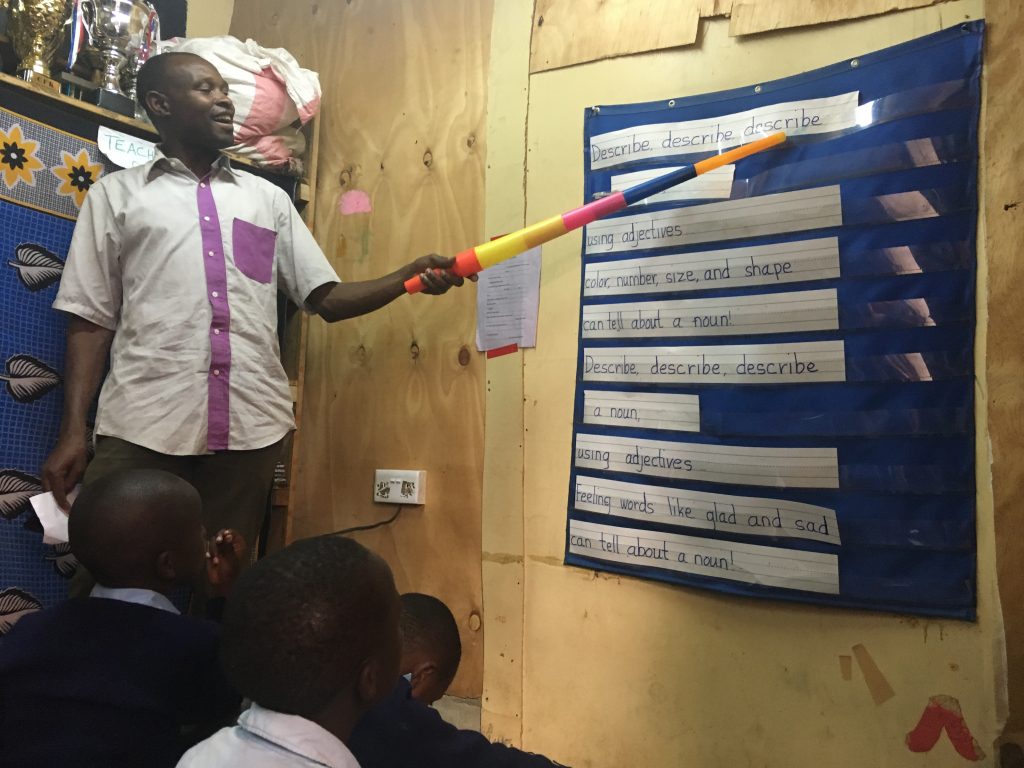 TEACH
Describe, describe, describe
using adjectives
color, number, size, and shape
can tell about a noun!
Describe, describe, describe
a noun,
using adjectives
feeling words like glad and sad
can tell about a noun!